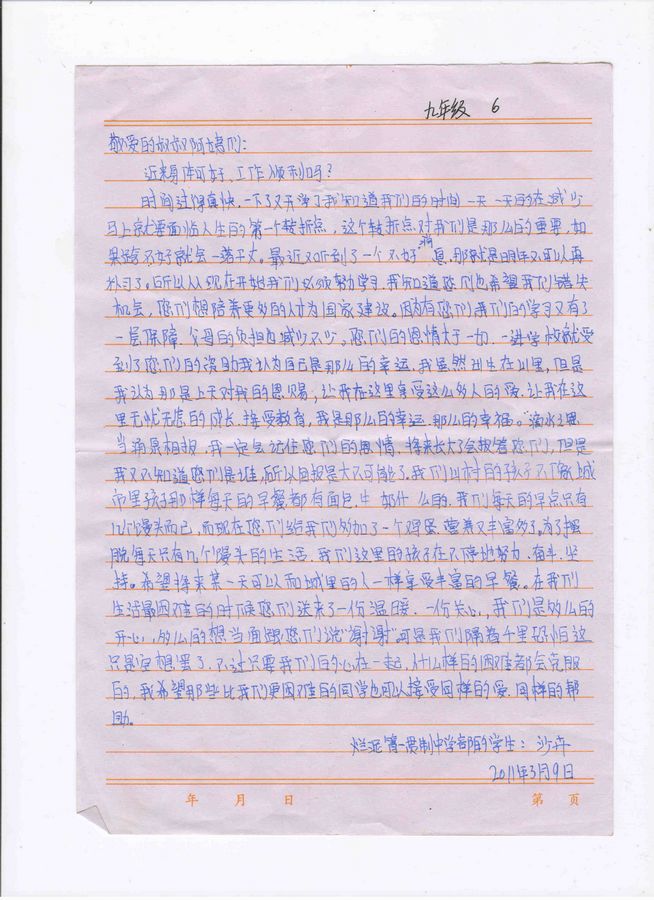 九年级 6
敬爱的叔叔阿姨们:
近来身体可好,工作顺利吗?
时间过得真快,一下了又开学了我知道我们的时间一天一天的在减少
马上就要面临人生的第一个转折点,这个转折点对我们是那么的重要,如
果跨不好就会一落千丈。最近又听到了一个不好消息,那就是明年不可以再
补习了。所以从现在开始我们必须努力学习,我知道您们也希望我们错失
机会,您们想培养更多的人才为国家建设。因为有您们我们的学习又有了
一层保障,父母的负担也减少不少,您们的恩情大于一切,一进学校就受
到了您们的资助我认为自己是那么的幸运,我虽然出生在山里,但是
我认为那是上天对我的恩赐,让我在这里享受这么多人的爱,让我在这
里无忧无虑的成长,接受教育,我是那么的幸运,那么的幸福。“滴水之恩
当涌泉相报,我一定会记住您们的恩情,将来长大了会报答您们,但是
我又不知道您们是谁,所以回报是大不可能了,我们山村的孩子不像城
市里孩子那样每天的早餐都有面包,牛奶什么的,我们每天的早点只有
几个馒头而已,而现在您们给我们多加了一个鸡蛋,营养又丰富多了。为了摆
脱每天只有几个馒头的生活,我们这里的孩子在不停地努力,奋斗,坚
持。希望将来某一天可以和城里的人一样享受丰富的早餐。在我们
生活最困难的时候您们送来了一份温暖,一份关心,我们是多么的
开心,多么的想当面跟您们说“谢谢”可是我们隔着千里恐怕这
只是空想罢了,不过只要我们的心在一起,什么样的困难都会克服
的,我希望那些比我们更困难的同学也可以接受同样的爱,同样的帮
助。
烂泥箐一贯制中学部的学生:沙卉
2011年3月9日
年 月 日 第 页